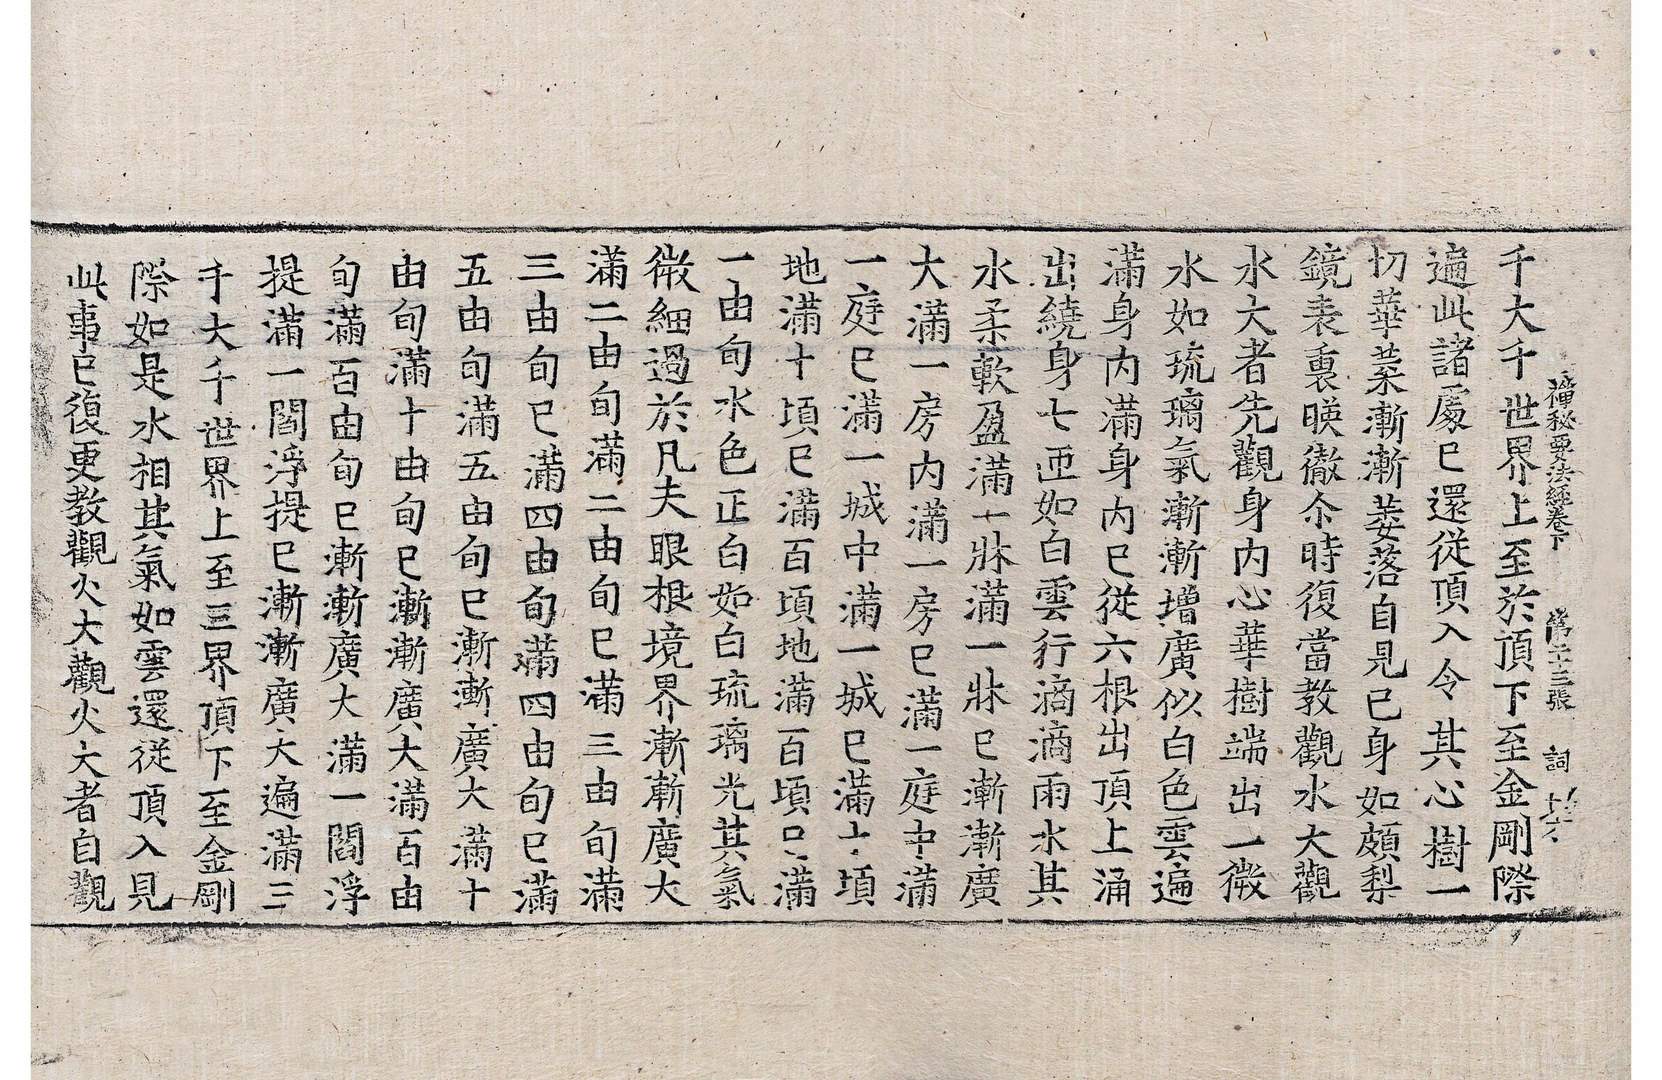 禪秘要法經卷下 第二十三張 詞
千大千世界上至於頂下至金剛際
遍此諸處已還從頂入令其心樹一
切華葉漸漸萎落自見己身如頗梨
鏡表裏暎徹尒時復當教觀水大觀
水大者先觀身内心華樹端出一微
水如琉璃氣漸漸增廣似白色雲遍
滿身内滿身内已從六根出頂上涌
出繞身七帀如白雲行滴滴雨水其
水柔軟盈滿一牀滿一牀已漸漸廣
大滿一房内滿一房已滿一庭中滿
一庭已滿一城中滿一城已滿十頃
地滿十頃已滿百頃地滿百頃已滿
一由旬水色正白如白琉璃光其氣
微細過於凡夫眼根境界漸漸廣大
滿二由旬滿二由旬已滿三由旬滿
三由旬已滿四由旬滿四由旬已滿
五由旬滿五由旬已漸漸廣大滿十
由旬滿十由旬已漸漸廣大滿百由
旬滿百由旬已漸漸廣大滿一閻浮
提滿一閻浮提已漸漸廣大遍滿三
千大千世界上至三界頂下至金剛
際如是水相其氣如雲還從頂入見
此事已復更教觀火大觀火大者自觀